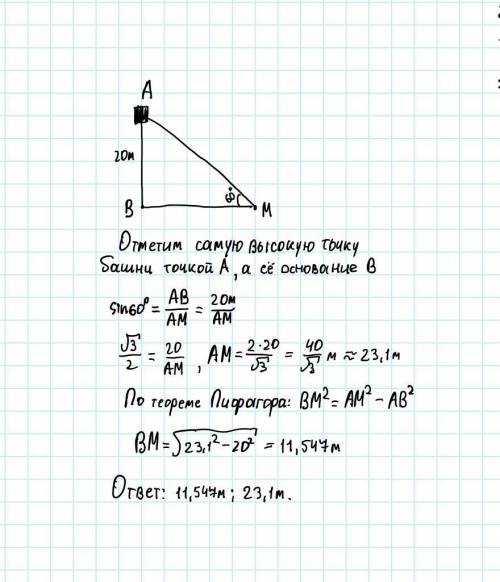 A
20м
B
60°
M
Отметим самую высокую точку
башни точкой A, а её основание B
sin60° = AB/AM = 20м/AM
√3/2 = 20/AM, AM = 2·20/√3 = 40/√3 м ≈ 23,1м
По теореме Пифагора: BM² = AM² − AB²
BM = √23,1² − 20² = 11,547м
Ответ: 11,547м; 23,1м.